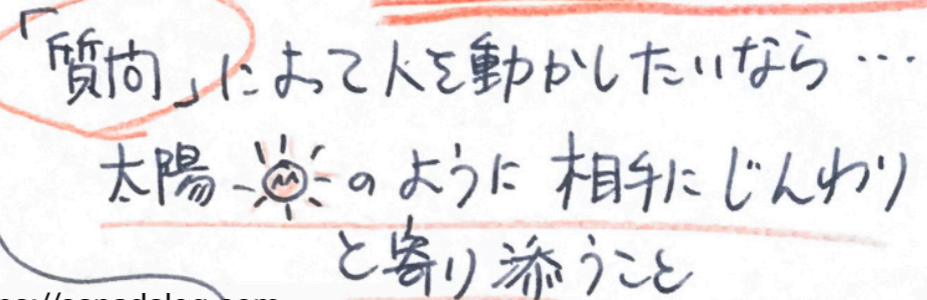 「質問」によって人を動かしたいなら…
太陽のように相手にじんわり
と寄り添うこと